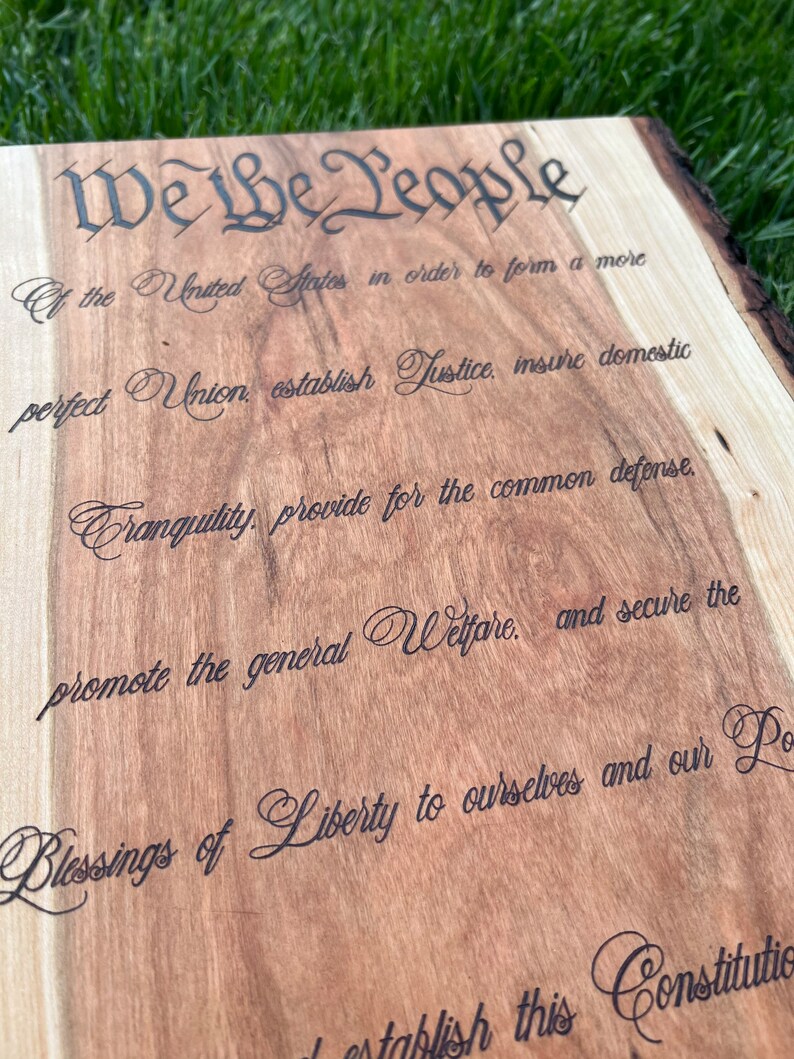 We the People
Of the United States in order to form a more
perfect Union, establish Justice, insure domestic
Tranquility, provide for the common defense,
promote the general Welfare, and secure the
Blessings of Liberty to ourselves and our
establish this